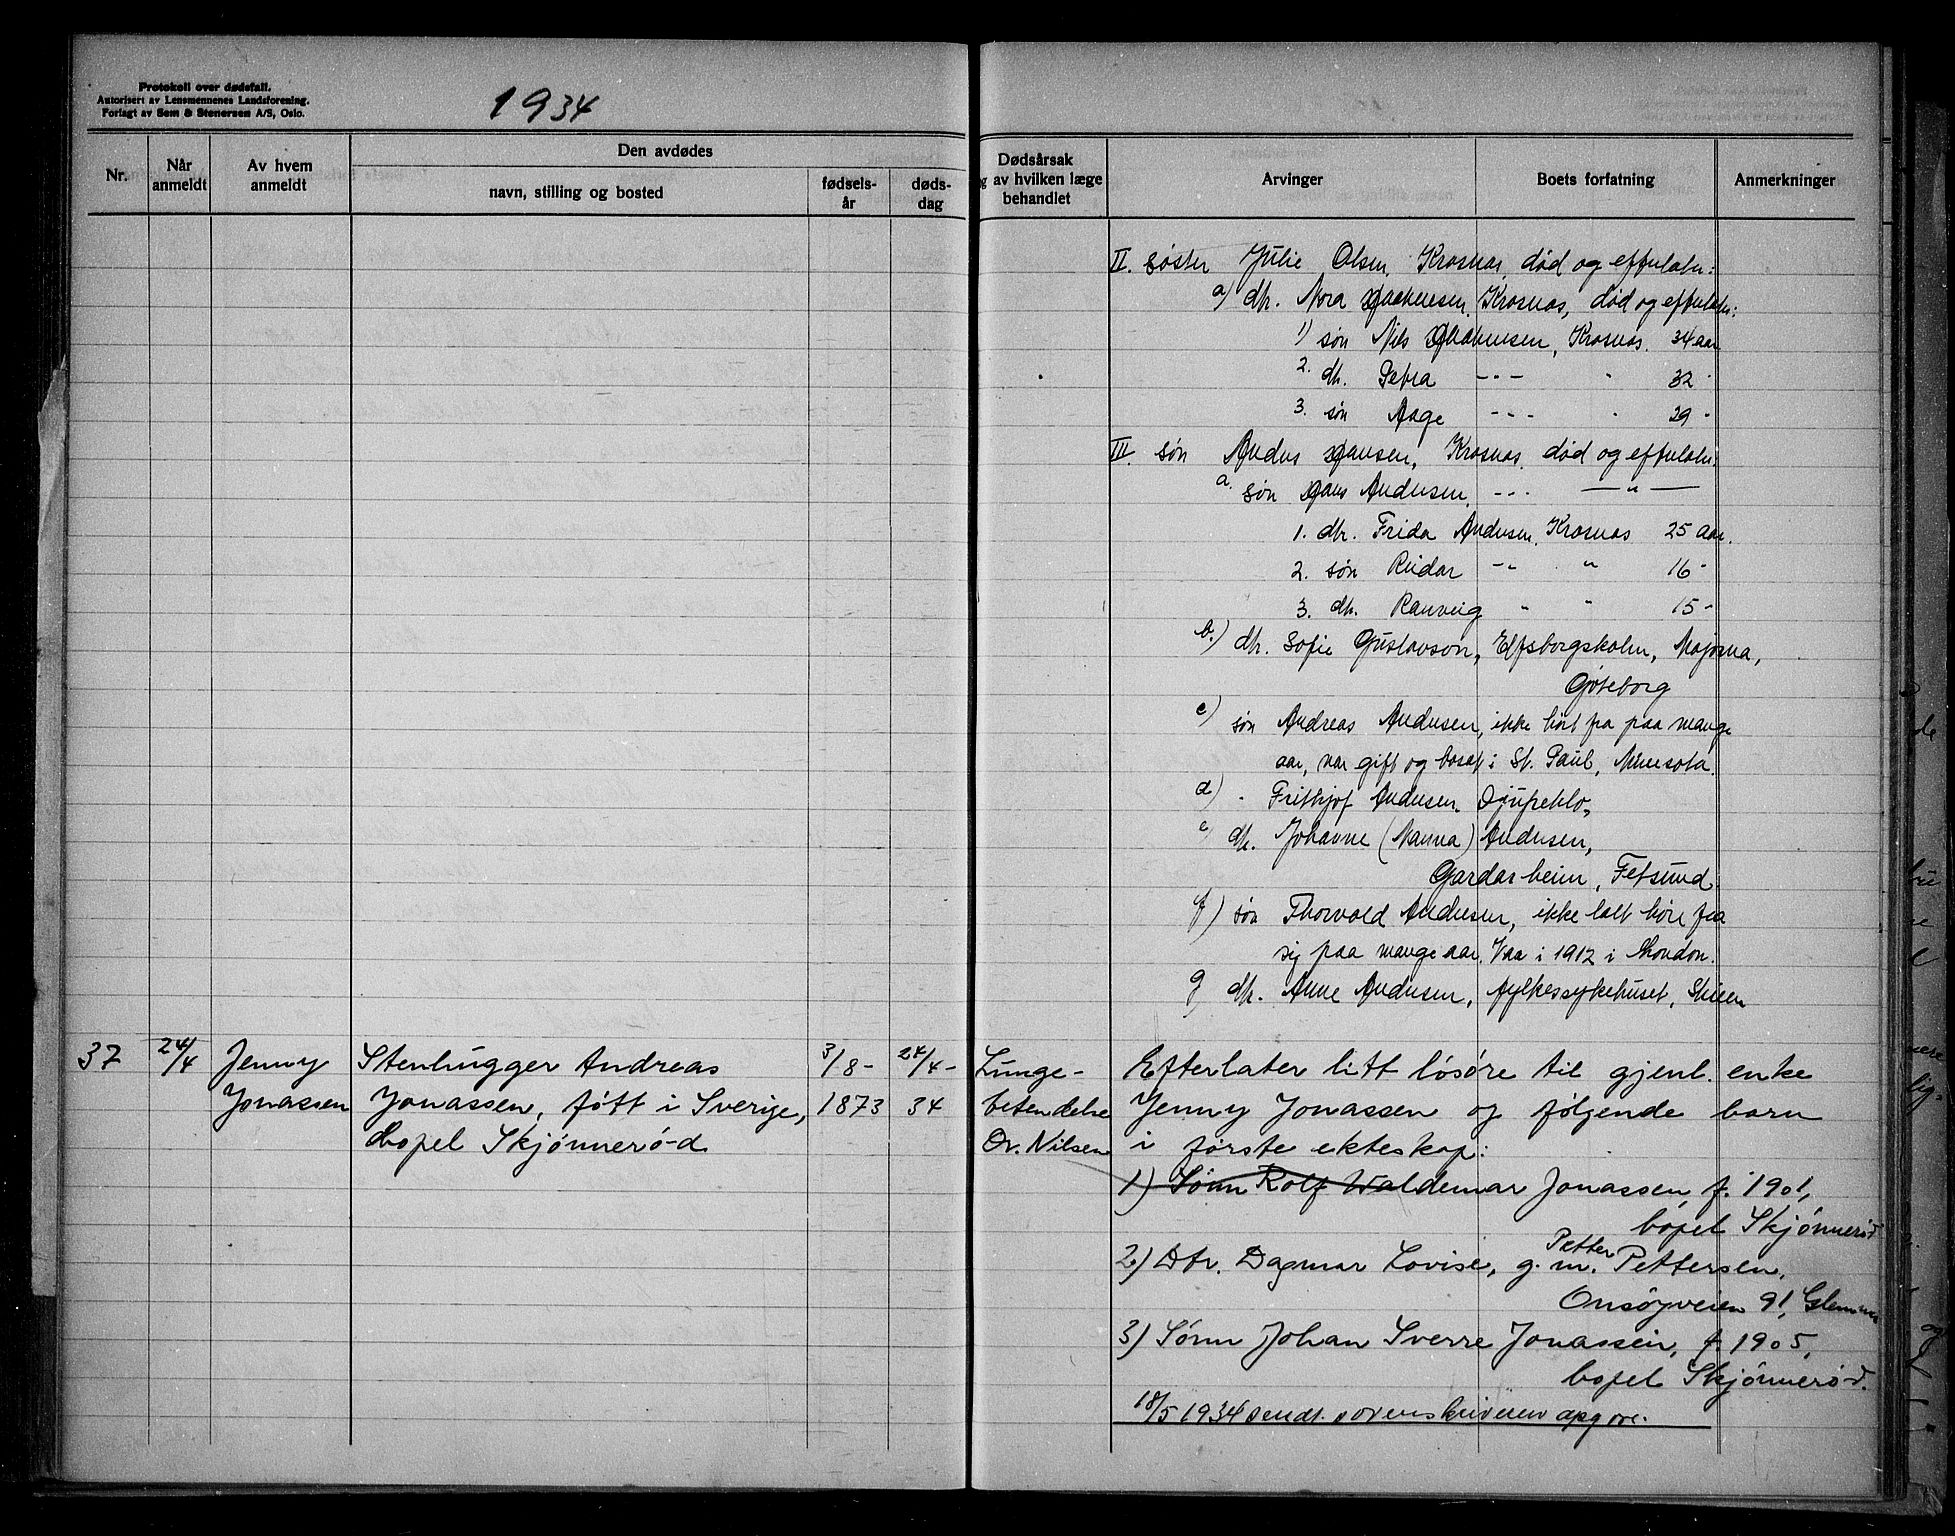 Protokoll over dødsfall.
Autorisert av Lensmennenes Landsforening.
Forlagt av Sem & Stenersen A/S, Oslo.
1934
Nr.
Når anmeldt
Av hvem anmeldt
Den avdødes
navn, stilling og bosted
fødsels-år
døds-dag
Dødsårsak
og av hvilken læge
behandlet
Arvinger
Boets forfatning
Anmerkninger
II. søster Julie Olsen, Krosnes, død og efterlater:
a) dtr. Nora Hachensen, Krosnes, død og efterlater:
1) søn Nils Hachensen, Krosnes. 34 aar
2. dtr. Petra -"- " 32 "
3. søn Aage -"- " 29 "
III. søn Anders Hansen, Krosnes, død og efterlater:
a. søn Hans Andersen, -"- —"—
1. dtr. Frida Andersen, Krosnes 25 aar.
2. søn Reidar -"- " 16 "
3. dtr. Ranveig " " 15 "
b.) dtr. Sofie Gustavson, Elfsborgskolen, Majorna,
Gøteborg
c) søn Andreas Andersen, ikke hørt fra paa mange
aar, var gift og bosat i St. Paul, Minnesota.
d) " Frithjof Andersen, Djupeklo,
e) dtr. Johanne (Nanna) Andersen,
Gardarheim, Fetsund
f) søn Thorvald Andersen, ikke latt høre fra
sig paa mange aar. Var i 1912 i
g dtr. Anne Andersen, fylkessykehuset, Skien
37 24/4 Jenny Stenhugger Andreas 3/8- 24/4- Lunge- Efterlater litt løsøre til gjenl. enke
Jonassen Jonassen, født i Sverige, 1873 34 betendelse Jenny Jonassen og følgende barn
bopel Skjønnerød Dr. Nilsen i første ekteskap:
1) Sønn Rolf Waldemar Jonassen, f. 1901,
bopel Skjønnerød
2) Dtr. Dagmar Lovise, g. m. Petter Pettersen,
Onsøyveien 91, Glemmen
3) Sønn Johan Sverre Jonassen, f. 1905,
bopel Skjønnerød.
18/5 1934 sendt sorenskriveren opgave.